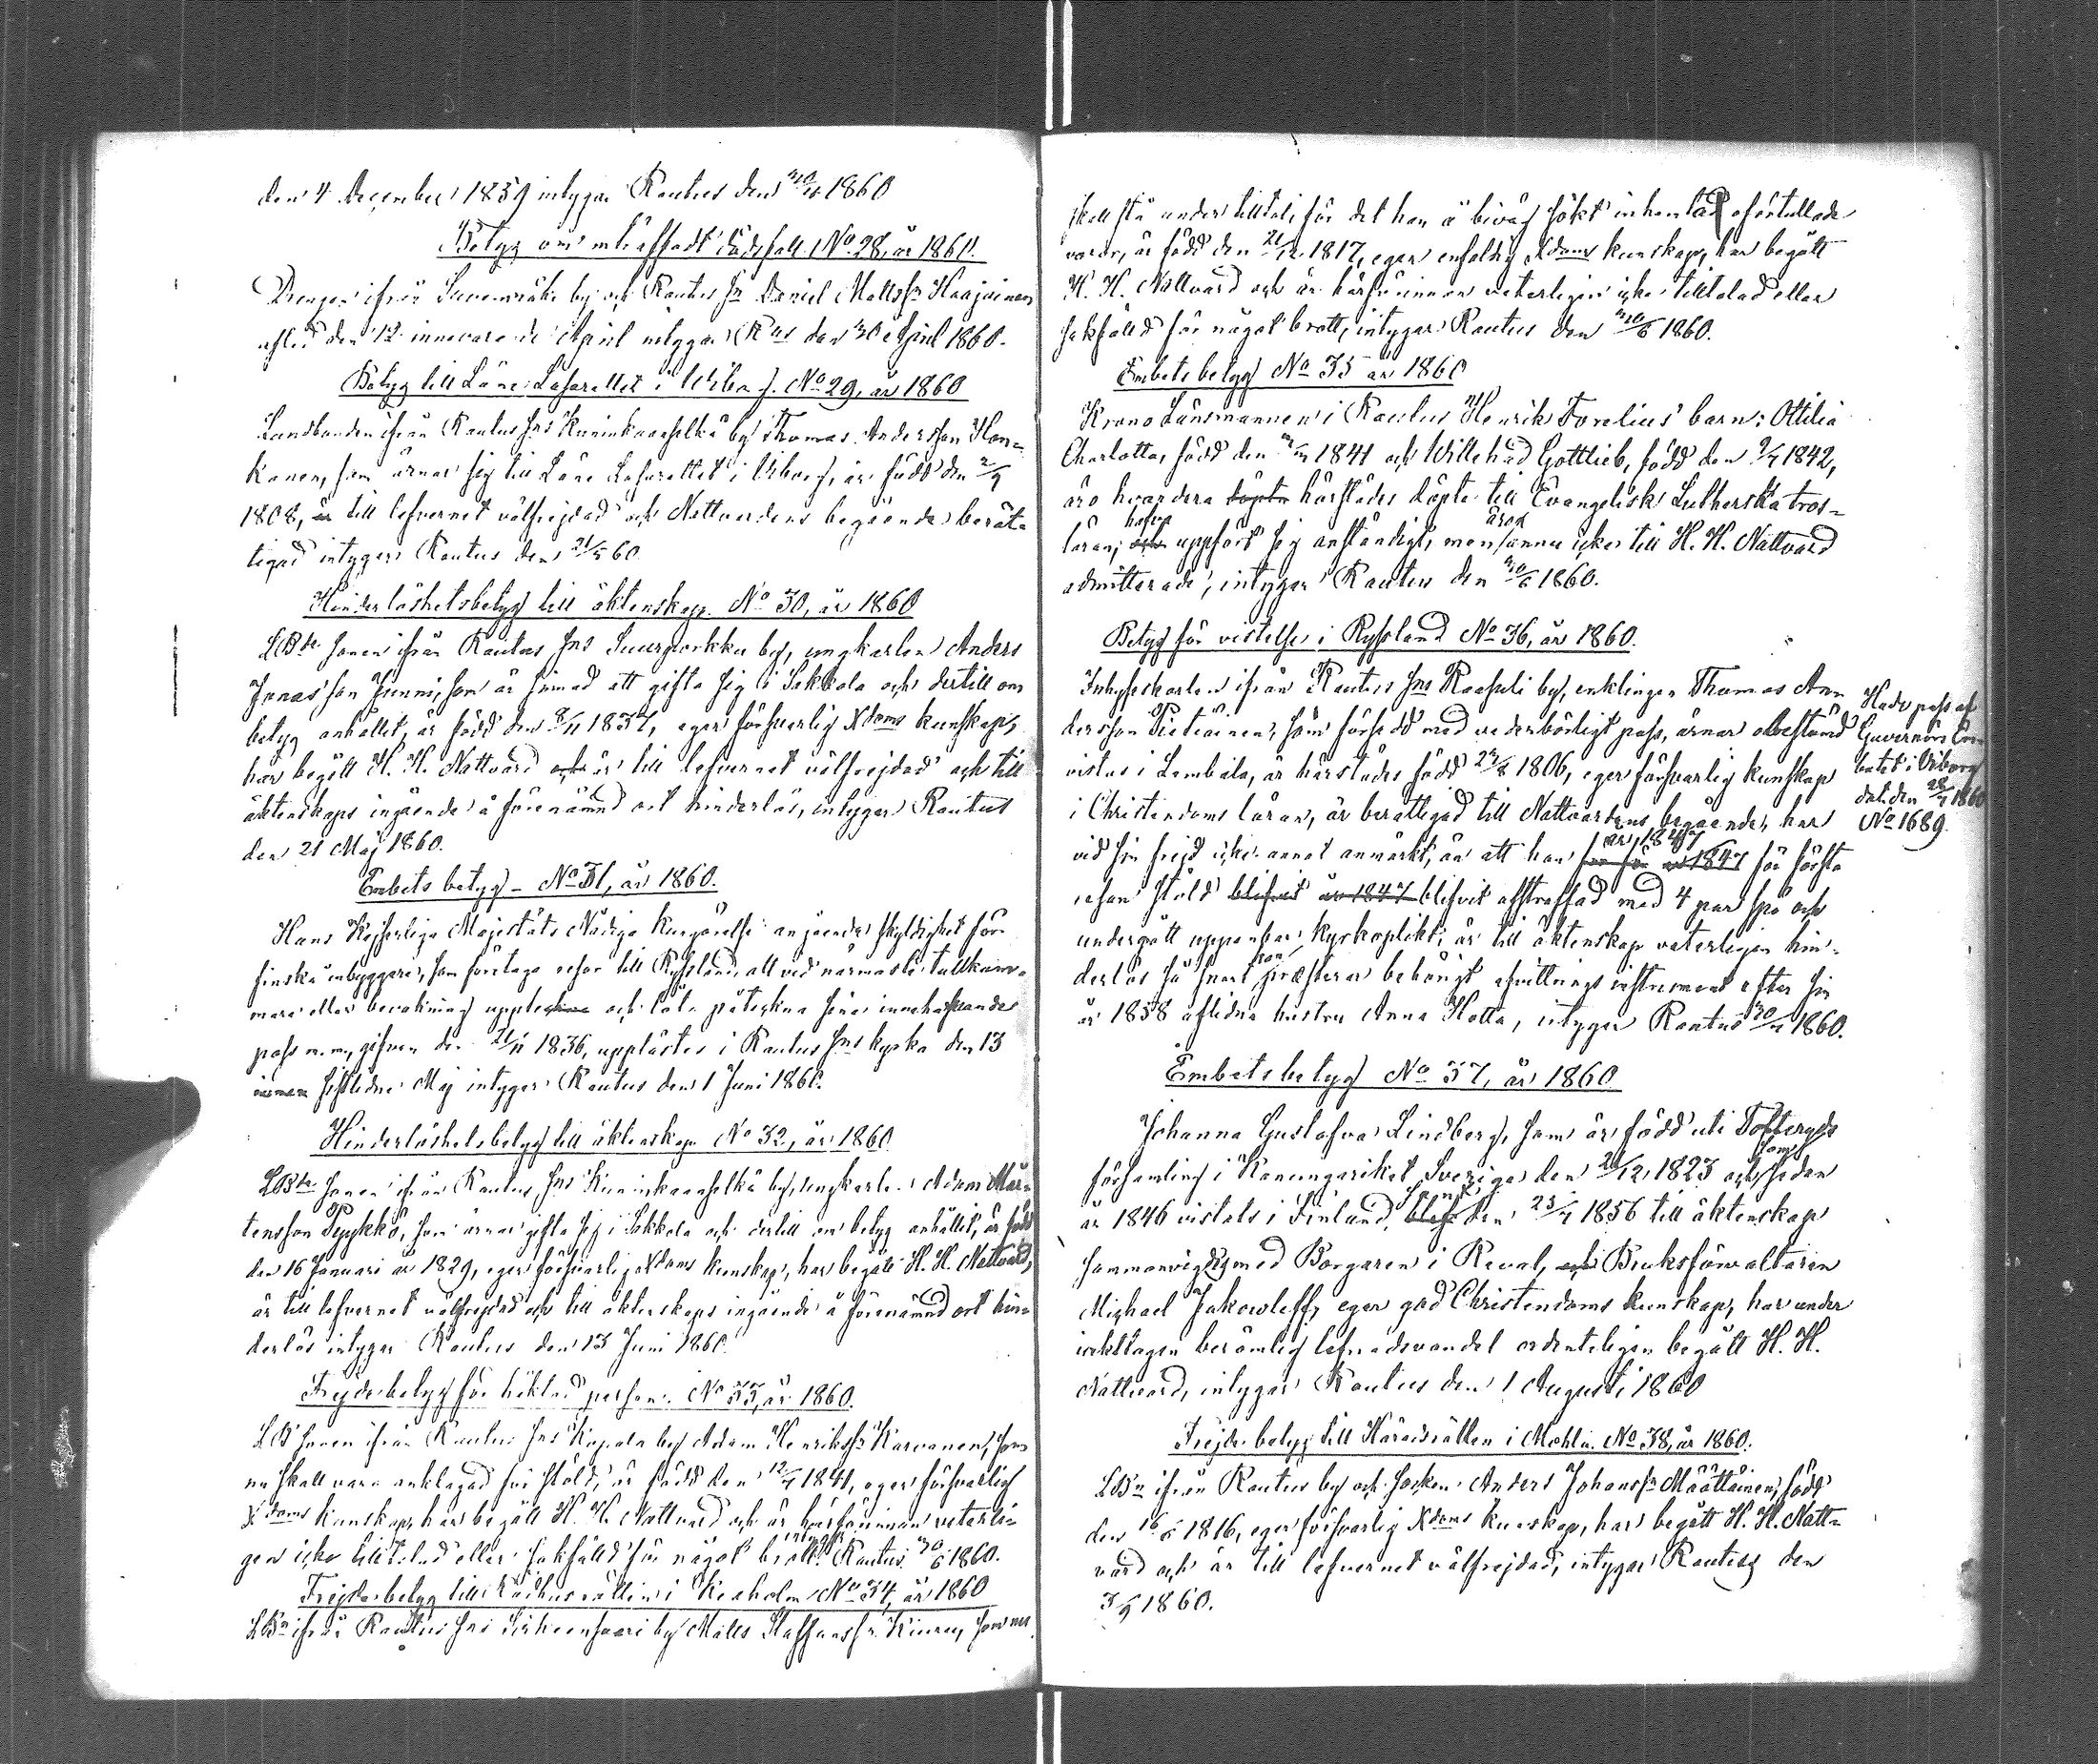 den 4 December 1859 intygar Rautus den 30/4 1860
Betyg om inträffadt dödsfall. No 28, år 1860.
Drengen ifrån Suvenmäki by och Rautus Sn Daniel Mattssn Haajainen
afled den 12 innevarande April intygar Rus den 30 April 1860.
Betyg till Läns Lasarettet i Wiborg. No 29, år 1860
Landbonden ifrån Rautus Sns Kuninkaanselkä by Thomas Andersson Hon=
kanen, som ärnar sig till Läns Lasarettet i Wiborg, är född den 2/9
1808, är till lefvernet välfrejdad och Nattvardens begående berät=
tigad intygar Rautus den 21/5 60.
Hinderlöshetsbetyg till äktenskap. No 30, år 1860
LBde sonen ifrån Rautus Sns Suurporkku by, ungkarlen Anders
Jonasson Junni, som är sinnad att gifta sig i Sakkola och dertill om
betyg anhållet, är född den 8/11 1837, eger försvarlig Xdoms kunskap,
har begått H. H. Nattvard och är till lefvernet välfrejdad och till
äktenskaps ingående å förenämnd ort hinderlös, intygar Rautus
den 21 Maj 1860.
Embets betyg – No 31, år 1860.
Hans Kejserliga Majestäts Nådiga Kungörelse angående skyldighet för
finska inbyggare, som företaga resor till Ryssland, att vid närmaste tullkam=
mare eller bevakning uppte och låta påteckna sina innehafvande
pass m.m., gifven den 21/11 1836, upplästes i Rautus Sns kyrka den 13
sistledne Maj intygar Rautus den 1 Juni 1860.
Hinderlöshetsbetyg till äktenskap No 32, år 1860
LBde sonen ifrån Rautus Sns Kuninkaanselkä by, ungkarlen Adam Mår=
tensson Pyykkö, som ärnar gifta sig i Sakkola och dertill om betyg anhållit, är född
den 16 Januari år 1829, eger försvarlig Xdoms kunskap, har begått H. H. Nattvard,
är till lefvernet välfrejdad och till äktenskaps ingående å förenämnd ort hin=
derlös intygar Rautus den 13 Juni 1860.
Frejdebetyg för häktad person. No 33, år 1860.
LB sonen ifrån Rautus Sns Kopala by Adam Henrikssn Karvanen, som
nu skall vara anklagad för stöld, är född den 12/4 1841, eger försvarlig
Xdoms kunskap, har begått H. H. Nattvard och är härförinnan veterli=
gen icke tilltalad eller sakfälld för något brott, intygar Rautus 30/6 1860.
Frejdebetyg till Rådhusrätten i Kexholm No 34, år 1860
LBn ifrån Rautus Sns Sirkeensaari by Matts Staffanssn Kiuru, som nu
skall stå under tilltal för det han å biväg sökt inhemtad oförtullade
varor, är född den 21/12 1817, eger enfaldig Xdoms kunskap, har begått
H. H. Nattvard och är härförinnan veterligen icke tilltalad eller
sakfälld för något brott, intygar Rautus den 30/6 1860.
Embets betyg No 35 år 1860
Krono Länsmannen i Rautus Henrik Forelius' barn: Otilia
Charlotta, född den 1841 och Willehad Gottlieb, född den 9/7 1842,
äro hvardera döpta härstädes döpte till Evangelisk Lutherska tros=
läran, och hafva uppfört sig anständigt, men äro ännu icke till H. H. Nattvard
admitterade, intygar Rautus den 30/6 1860.
Betyg för vistelse i Ryssland No 36, år 1860.
Inhyseskarlen ifrån Rautus Sns Raasuli by, enklingen Thomas An=
dersson Pietiäinen, som försedd med vederbörligt pass, ärnar obestämd
vistas i Lembala, är härstädes född 23/8 1806, eger försvarlig kunskap
i Christendoms läran, är berättigad till Nattvardens begående, har
vid sin frejd icke annat anmärkt, än att han år 1847 för första
resan stöld blifvit år 1847 blifvit afstraffad med 4 par spö och
undergått uppenbar kyrkoplikt; är till äktenskap veterligen hin=
derlös så snart han præsterar behörigt afvittrings instrument efter sin
år 1858 aflidna hustru Anna Hotta, intygar Rautus 30/7 1860.
Hade pass af
Guvernörs Em=
betet i Wiborg
dat. den 28/7 1860
No 1689.
Embetsbetyg No 37, år 1860
Johanna Gustafva Lindberg, som är född uti Tofteryds
församling i Konungariket Sverige den 21/12 1823 och som sedan
år 1846 vistats i Finland, blef den 23/7 1856 till äktenskap
sammanvigd med Borgaren i Reval, och Bruksförvaltaren
Michael Jakowleff, eger god Christendoms kunskap, har under
iakttagen berömlig lefnadsvandel ordenteligen begått H. H.
Nattvard, intygar Rautus den 1 Augusti 1860
Frejde betyg till Häradsrätten i Mohla. No 38, år 1860.
LBn ifrån Rautus by och socken Anders Johanssn Määttäinen, född
den 16/5 1816, eger försvarlig Xdoms kunskap, har begått H. H. Natt=
vard och är till lefvernet välfrejdad, intygar Rautus den
3/9 1860.